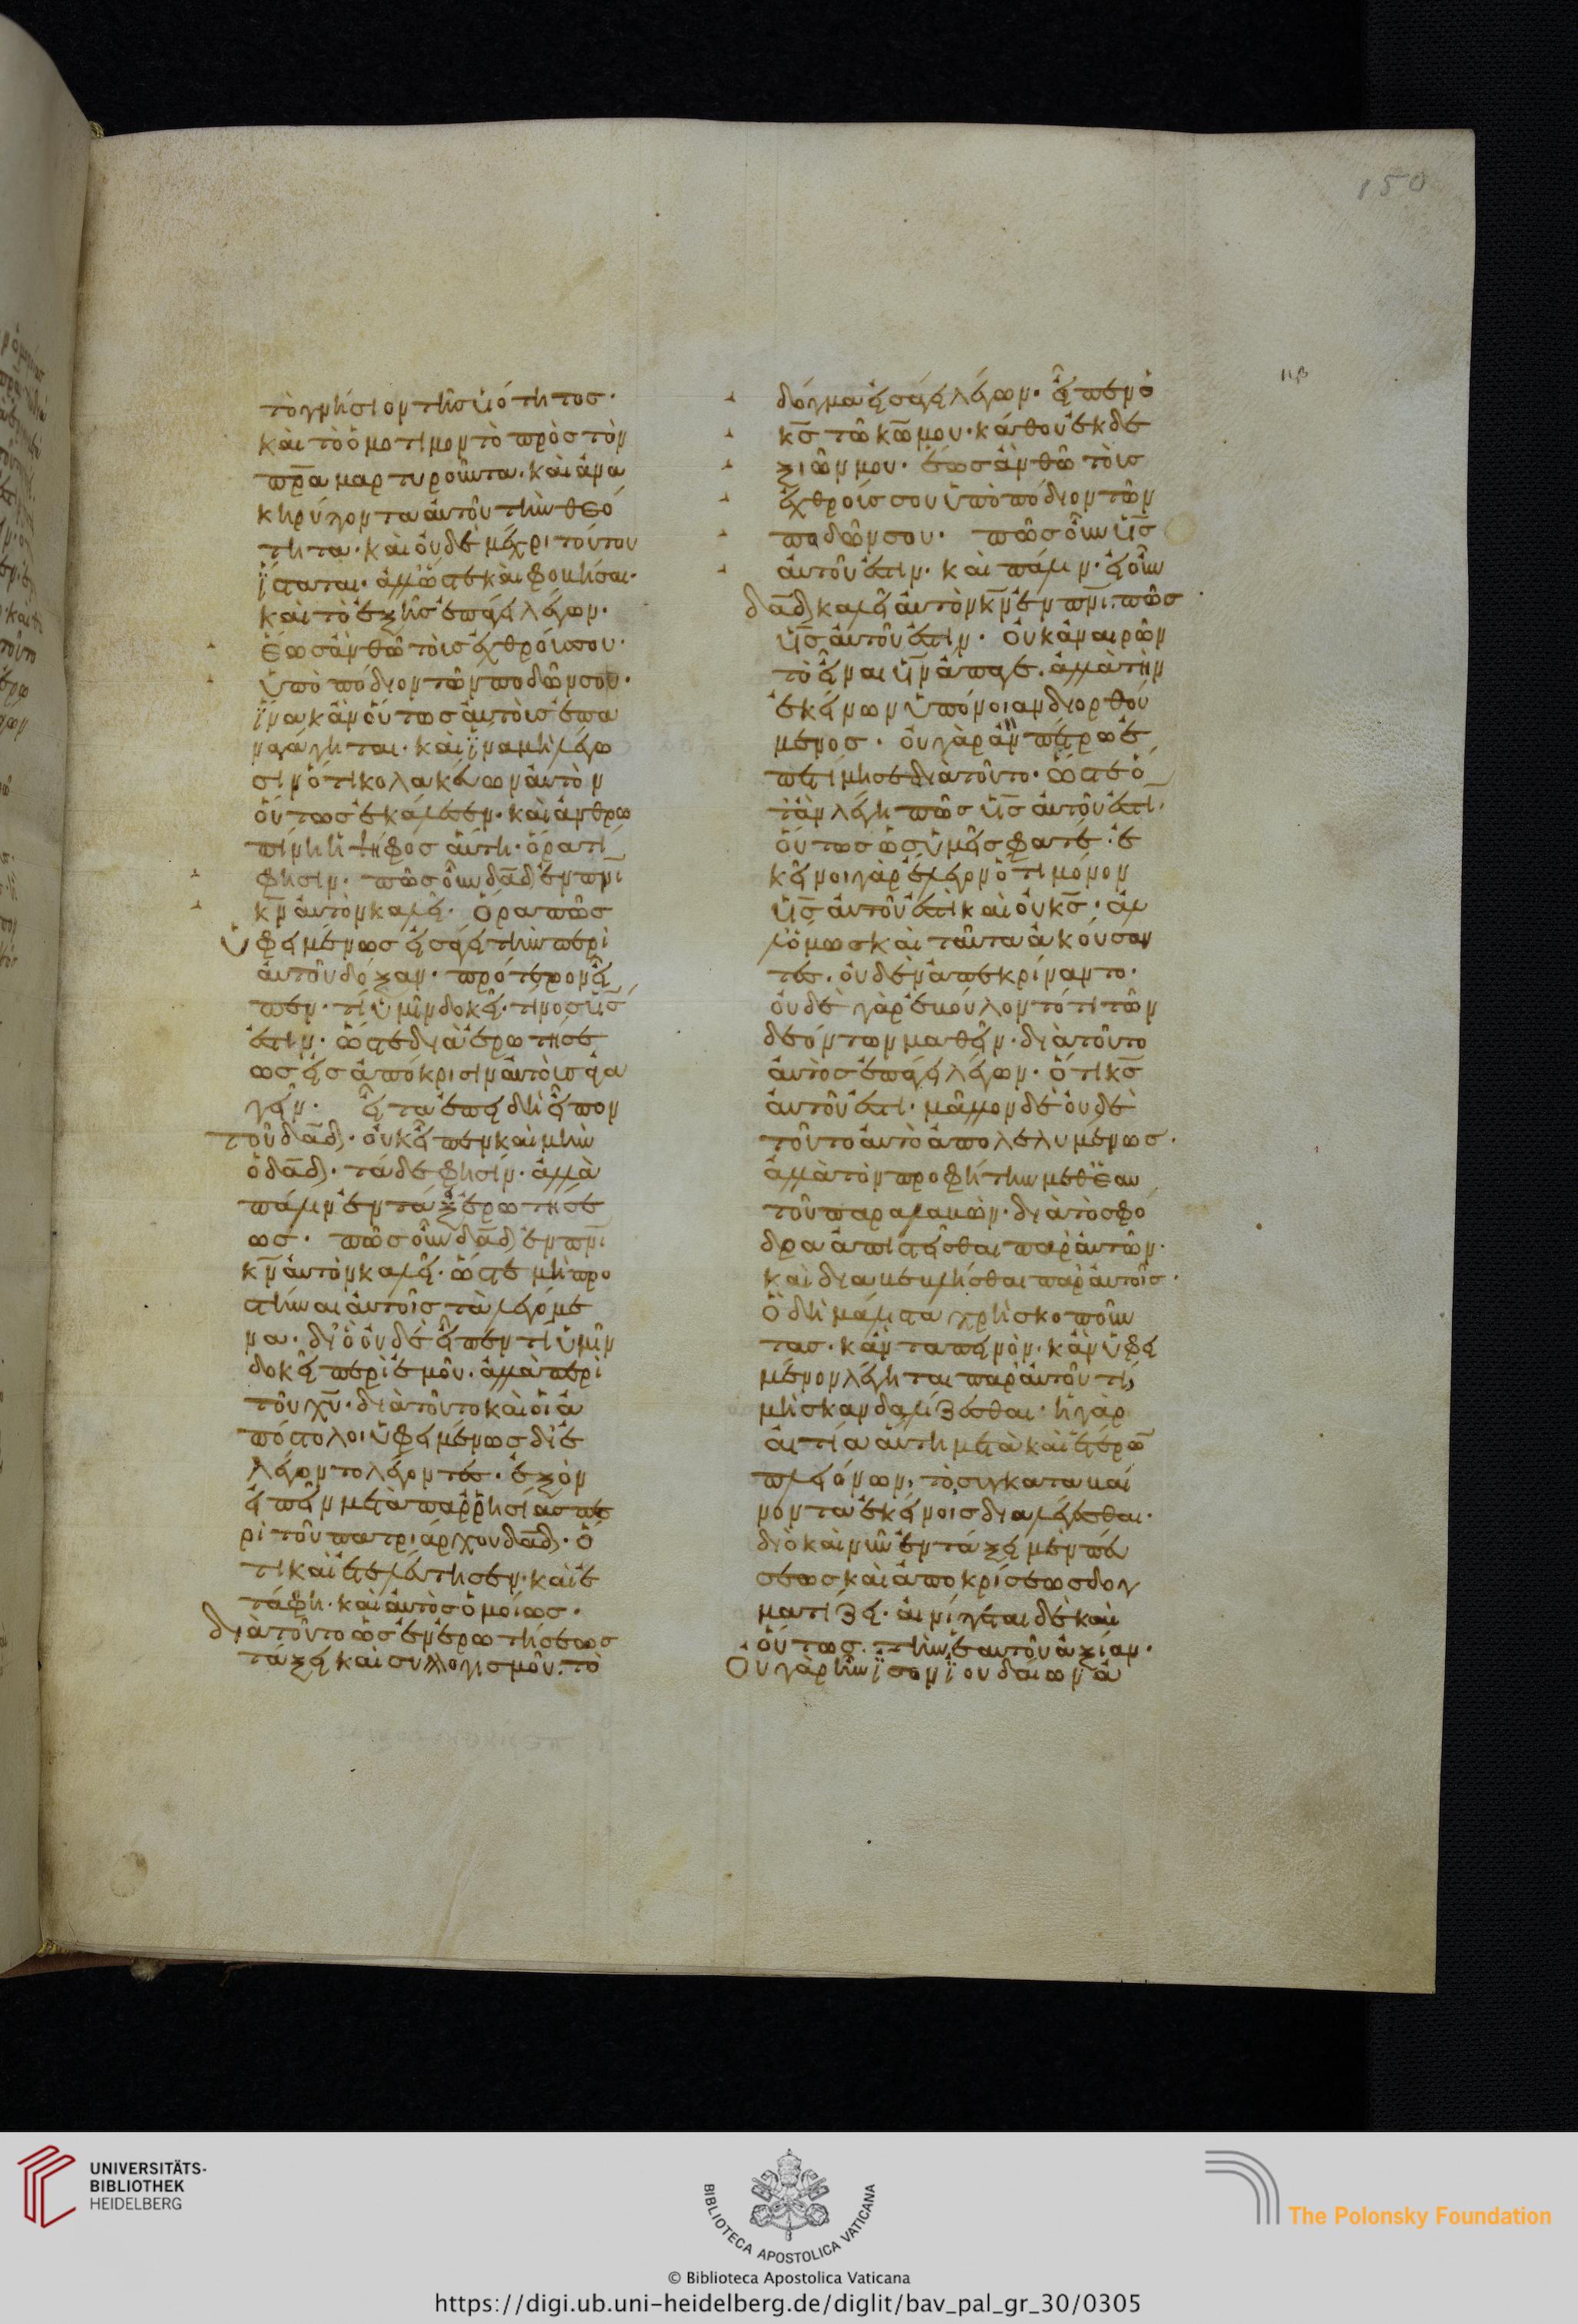 150
τὸ γνήσιον τῆς υἱότητος·
καὶ τὸ ὁμότιμον τὸ πρὸς τὸν
πρ̅α μαρτυροῦντα. καὶ ἀνα
κηρύττοντα αὐτοῦ τὴν θεό
τητα· καὶ οὐδὲ μέχρι τούτου
ἵσταται. ἀλλ' ὥστε καὶ φοβῆσαι·
καὶ τὸ ἑξῆς ἐπάγει λέγων·
ἕως ἂν θῶ τοὺς ἐχθρούς σου·
ὑποπόδιον τῶν ποδῶν σου·
ἵνα κἂν οὕτως αὐτοὺς ἐπα
γάγηται· καὶ ἵνα μὴ λέγω
σιν ὅτι κολακεύων αὐτὸν
οὕτως ἐκάλεσεν. καὶ ἀνθρω
πίνη ἡ ψῆφος αὕτη. ὅρα τί
φησιν. πῶς οὖν δα̅δ ἐν πν̅ι
κν̅ αὐτὸν καλεῖ. Ὅρα πῶς
ὑφειμένως εἰσάγει τὴν περὶ
αὐτοῦ δόξαν. πρότερον εἶ
πεν. τί ὑμῖν δοκεῖ. τίνος υς̅
ἐστιν. ὥστε δι' ἐρωτήσε
ως εἰς ἀπόκρισιν αὐτοὺς ἀγα
γεῖν. εἶτα ἐπειδὴ εἶπον
τοῦ δα̅δ. οὐκ εἶπεν καὶ μὴν
ὁ δα̅δ. τάδε φησίν. ἀλλὰ
πάλιν ἐν τάξει ἐρωτήσε
ως. πῶς οὖν δα̅δ ἐν πν̅ι
κν̅ αὐτὸν καλεῖ. ὥστε μὴ προ
στῆναι αὐτοῖς τὰ λεγόμε
να. διὸ οὐδὲ εἶπεν τί ὑμῖν
δοκεῖ περὶ ἐμοῦ. ἀλλὰ περὶ
τοῦ χυ̅. διὰ τοῦτο καὶ οἱ ἀ
πόστολοι ὑφειμένως διε
λέγοντο λέγοντες. ἐξὸν
εἰπεῖν μετὰ παρρησίας πε
ρὶ τοῦ πατριάρχου δα̅δ. ὅ
τι καὶ ἐτελεύτησεν. καὶ ἐ
τάφη. καὶ αὐτὸς ὁμοίως.
διὰ τοῦτο ὡς ἐν ἐρωτήσεως
τάξει καὶ συλλογισμοῦ. τὸ
δόγμα εἰσάγει λέγων. εἶπεν ὁ
κς̅ τῶ κω̅ μου. κάθου ἐκ δε
ξιῶν μου. ἕως ἂν θῶ τοὺς
ἐχθρούς σου ὑποπόδιον τῶν
ποδῶν σου. πῶς οὖν υς̅
αὐτοῦ ἐστιν. καὶ πάλιν. εἰ οὖν
δα̅δ καλεῖ αὐτὸν κν̅ ἐν πν̅ι. πῶς
υς̅ αὐτοῦ ἐστιν. οὐκ ἀναιρῶν
τὸ εἶναι υν̅ ἄπαγε. ἀλλὰ τὴν
ἐκείνων ὑπόνοιαν διορθού
μενος. οὐ γὰρ ἂν πέτρω ἐ
πετίμησε διὰ τοῦτο. ὥστε ὅ
τὰν λέγη πῶς υς̅ αὐτοῦ ἐστι.
οὕτως ὡς ὑμεῖς φατέ. ἐ
κεῖνοι γὰρ ἔλεγον ὅτι μόνον
υς̅ αὐτοῦ ἐστι καὶ οὐ κς̅. ἀλ
λ' ὅμως καὶ ταῦτα ἀκούσαν
τες. οὐδὲν ἀπεκρίναντο.
οὐδὲ γὰρ ἐβούλοντό τι τῶν
δεόντων μαθεῖν. διὰ τοῦτο
αὐτὸς ἐπάγει λέγων. ὅτι κς̅
αὐτοῦ ἐστι. μᾶλλον δὲ οὐδὲ
τοῦτο αὐτὸ ἀπολελυμένως.
ἀλλὰ τὸν προφήτην μεθ' ἑαυ
τοῦ παραλαβών. διὰ τὸ σφό
δρα ἀπιστεῖσθαι παρ' αὐτῶν.
καὶ διαβεβλῆσθαι παρ' αὐτοῖς.
Ὃ δὴ μάλιστα χρὴ σκοποῦν
τας. κἂν ταπεινὸν. κἂν ὑφει
μένον λέγηται παρ' αὐτοῦ τι,
μὴ σκανδαλίζεσθαι. ἡ γὰρ
αἰτία αὕτη μετὰ καὶ ἑτέρω̅
πλειόνων, τὸ συγκαταβαί
νοντα ἐκείνοις διαλέγεσθαι.
διὸ καὶ νῦν ἐν τάξει μὲν πεύ
σεως καὶ ἀποκρίσεως δογ
ματίζει. αἰνίττεται δὲ καὶ
οὕτως. τὴν ἑαυτοῦ ἀξίαν.
Οὐ γὰρ ἦν ἴσον ἰουδαίων ἀ
UNIVERSITÄTS-
BIBLIOTHEK
HEIDELBERG
BIBLIOTECA APOSTOLICA VATICANA
© Biblioteca Apostolica Vaticana
The Polonsky Foundation
https://digi.ub.uni-heidelberg.de/diglit/bav_pal_gr_30/0305